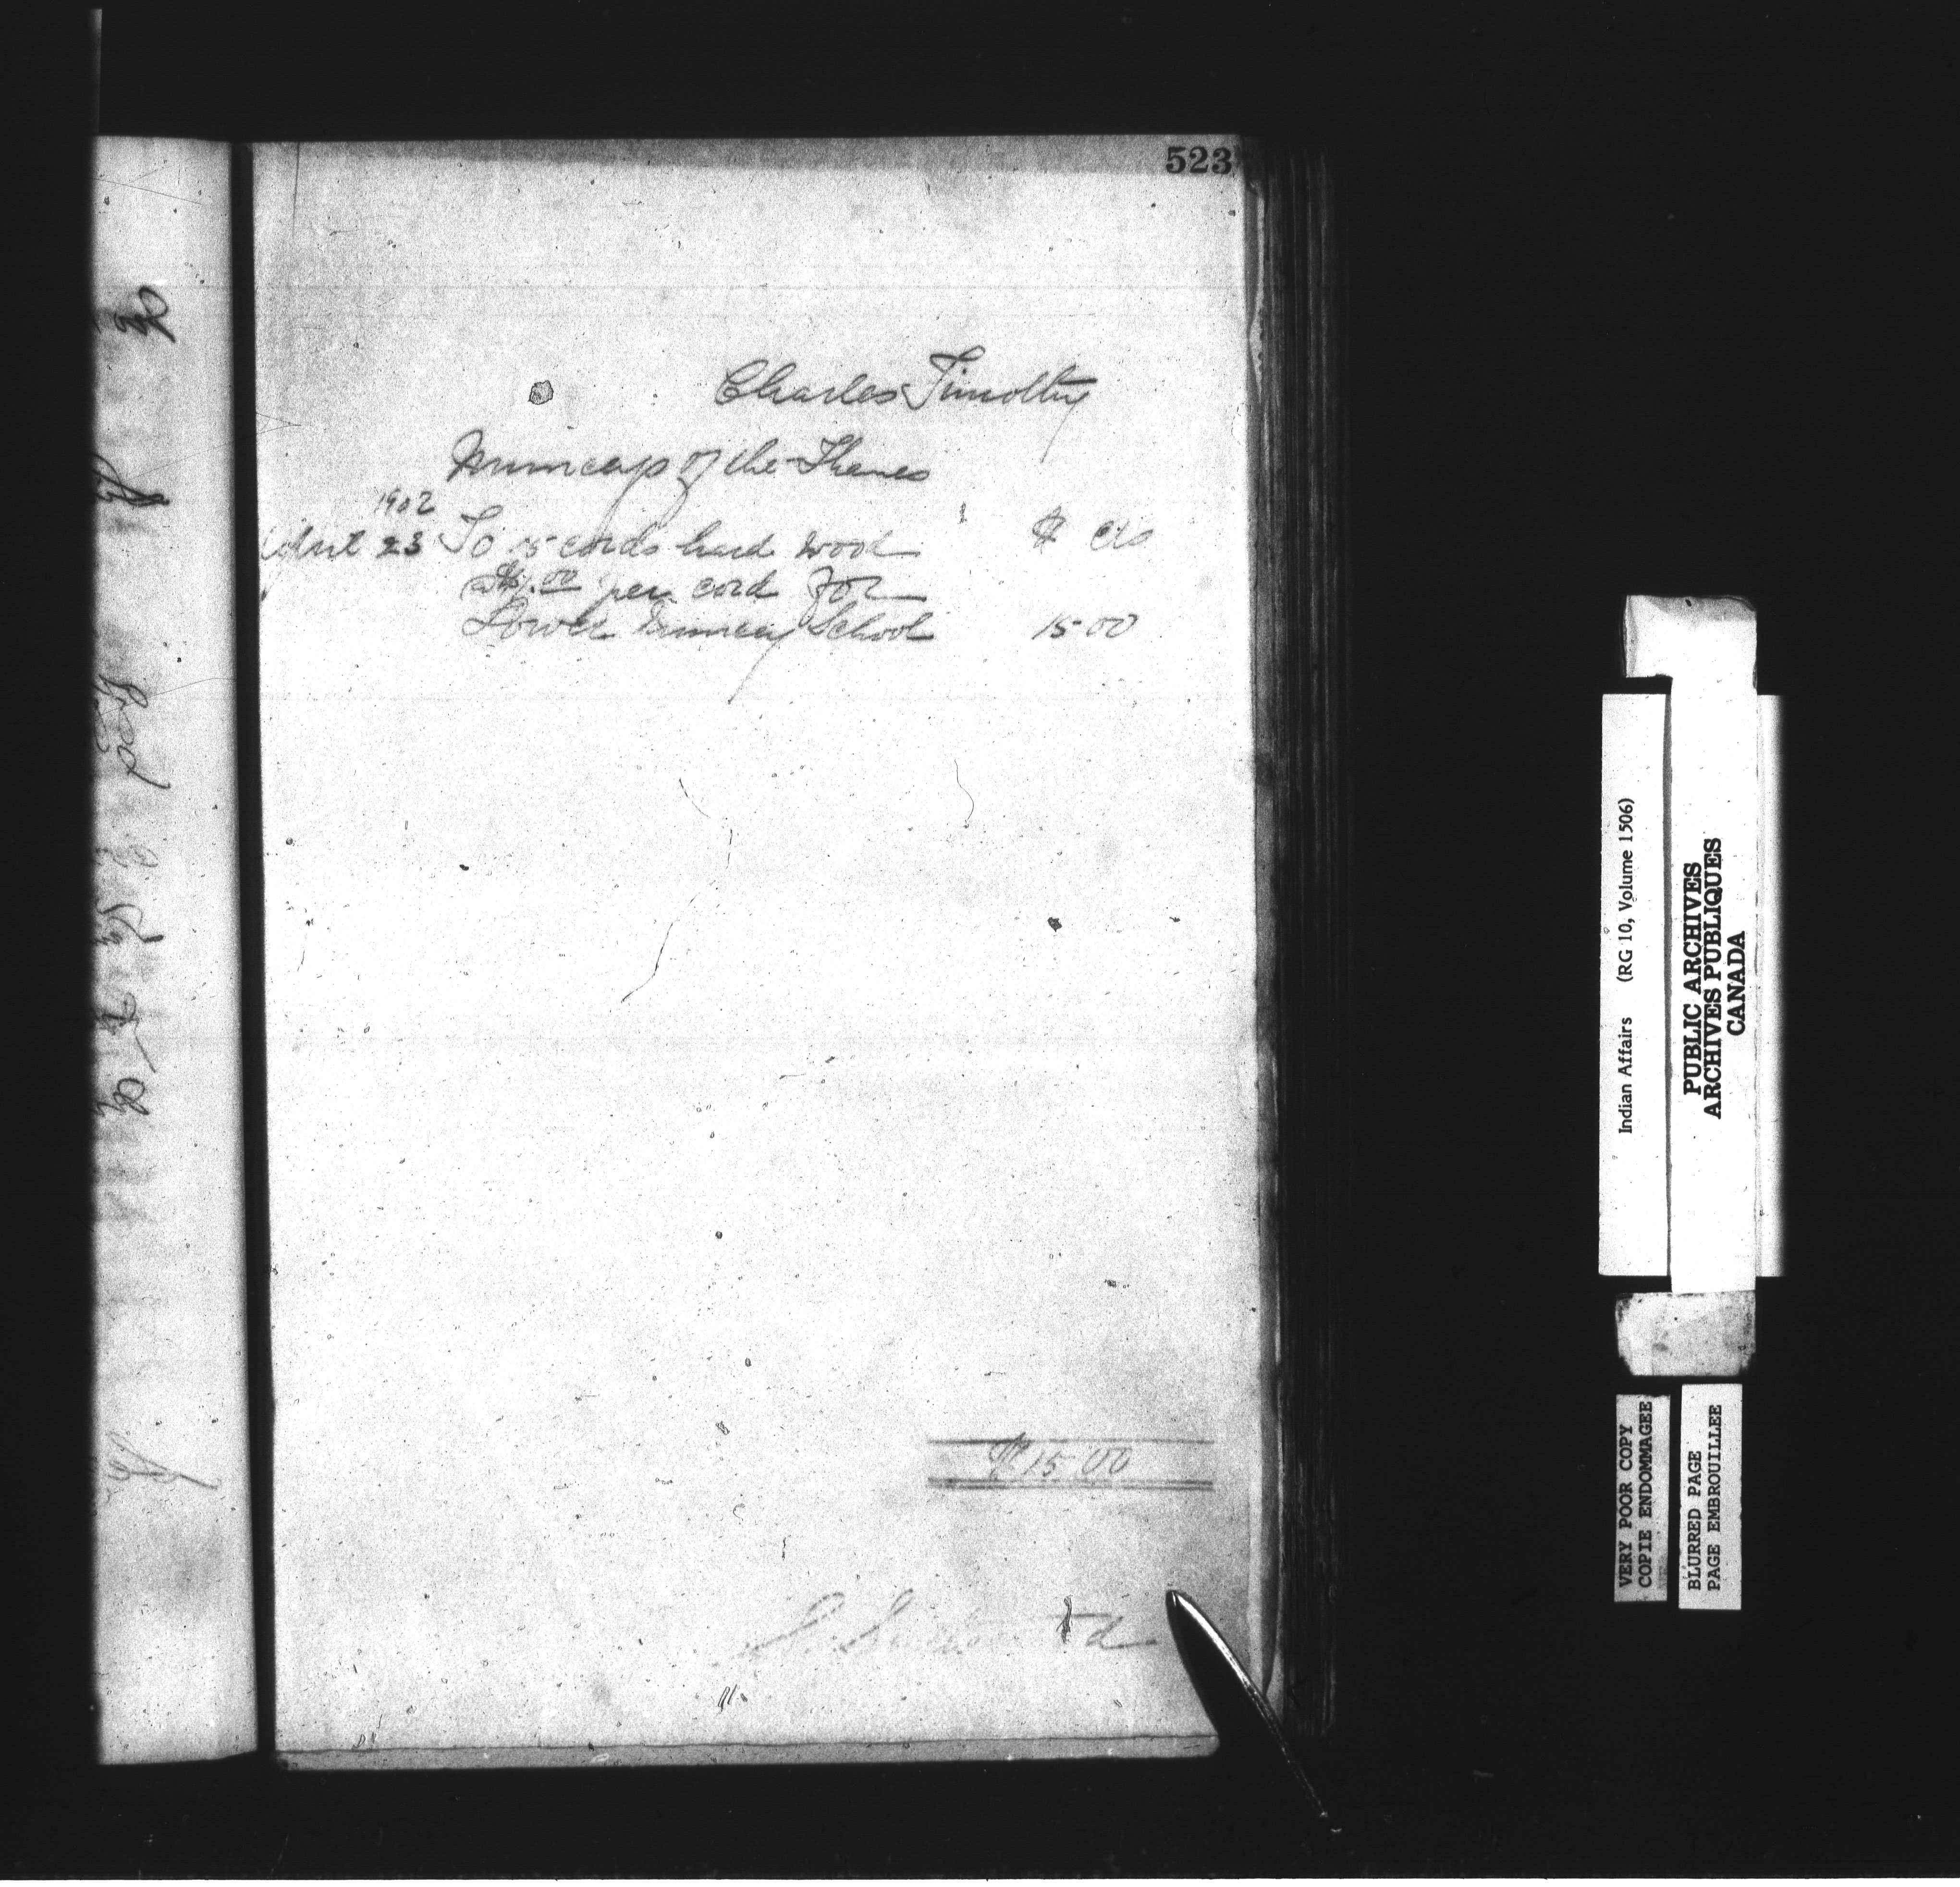 523
Charles Timothy
Munceys of the Thames
1902
April 23 To 15 cords hard wood $ cts
@ $1.00 per cord for
Lower Muncey School 15 00
$15 00
Indian Affairs (RG 10, Volume 1506)
PUBLIC ARCHIVES
ARCHIVES PUBLIQUES
CANADA
VERY POOR COPY
COPIE ENDOMMAGEE
BLURRED PAGE
PAGE EMBROUILLEE